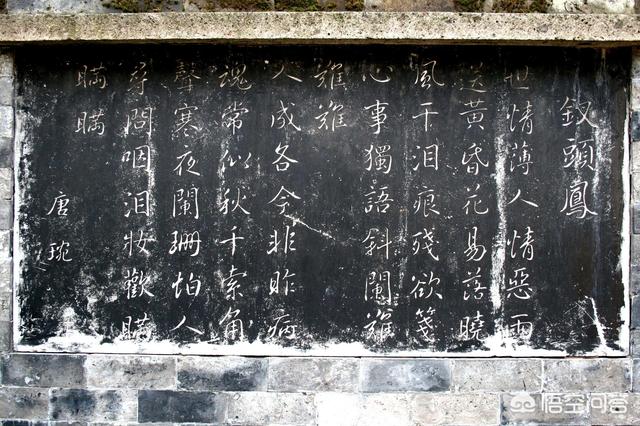 釵頭鳳
世情薄人情惡雨
送黃昏花易落曉
風干泪痕殘欲箋
心事獨語斜闌難
難難
人成各今非昨病
魂常似秋千索角
聲寒夜闌珊怕人
尋問咽泪妝歡瞞
瞞瞞
唐琬
悟空问答